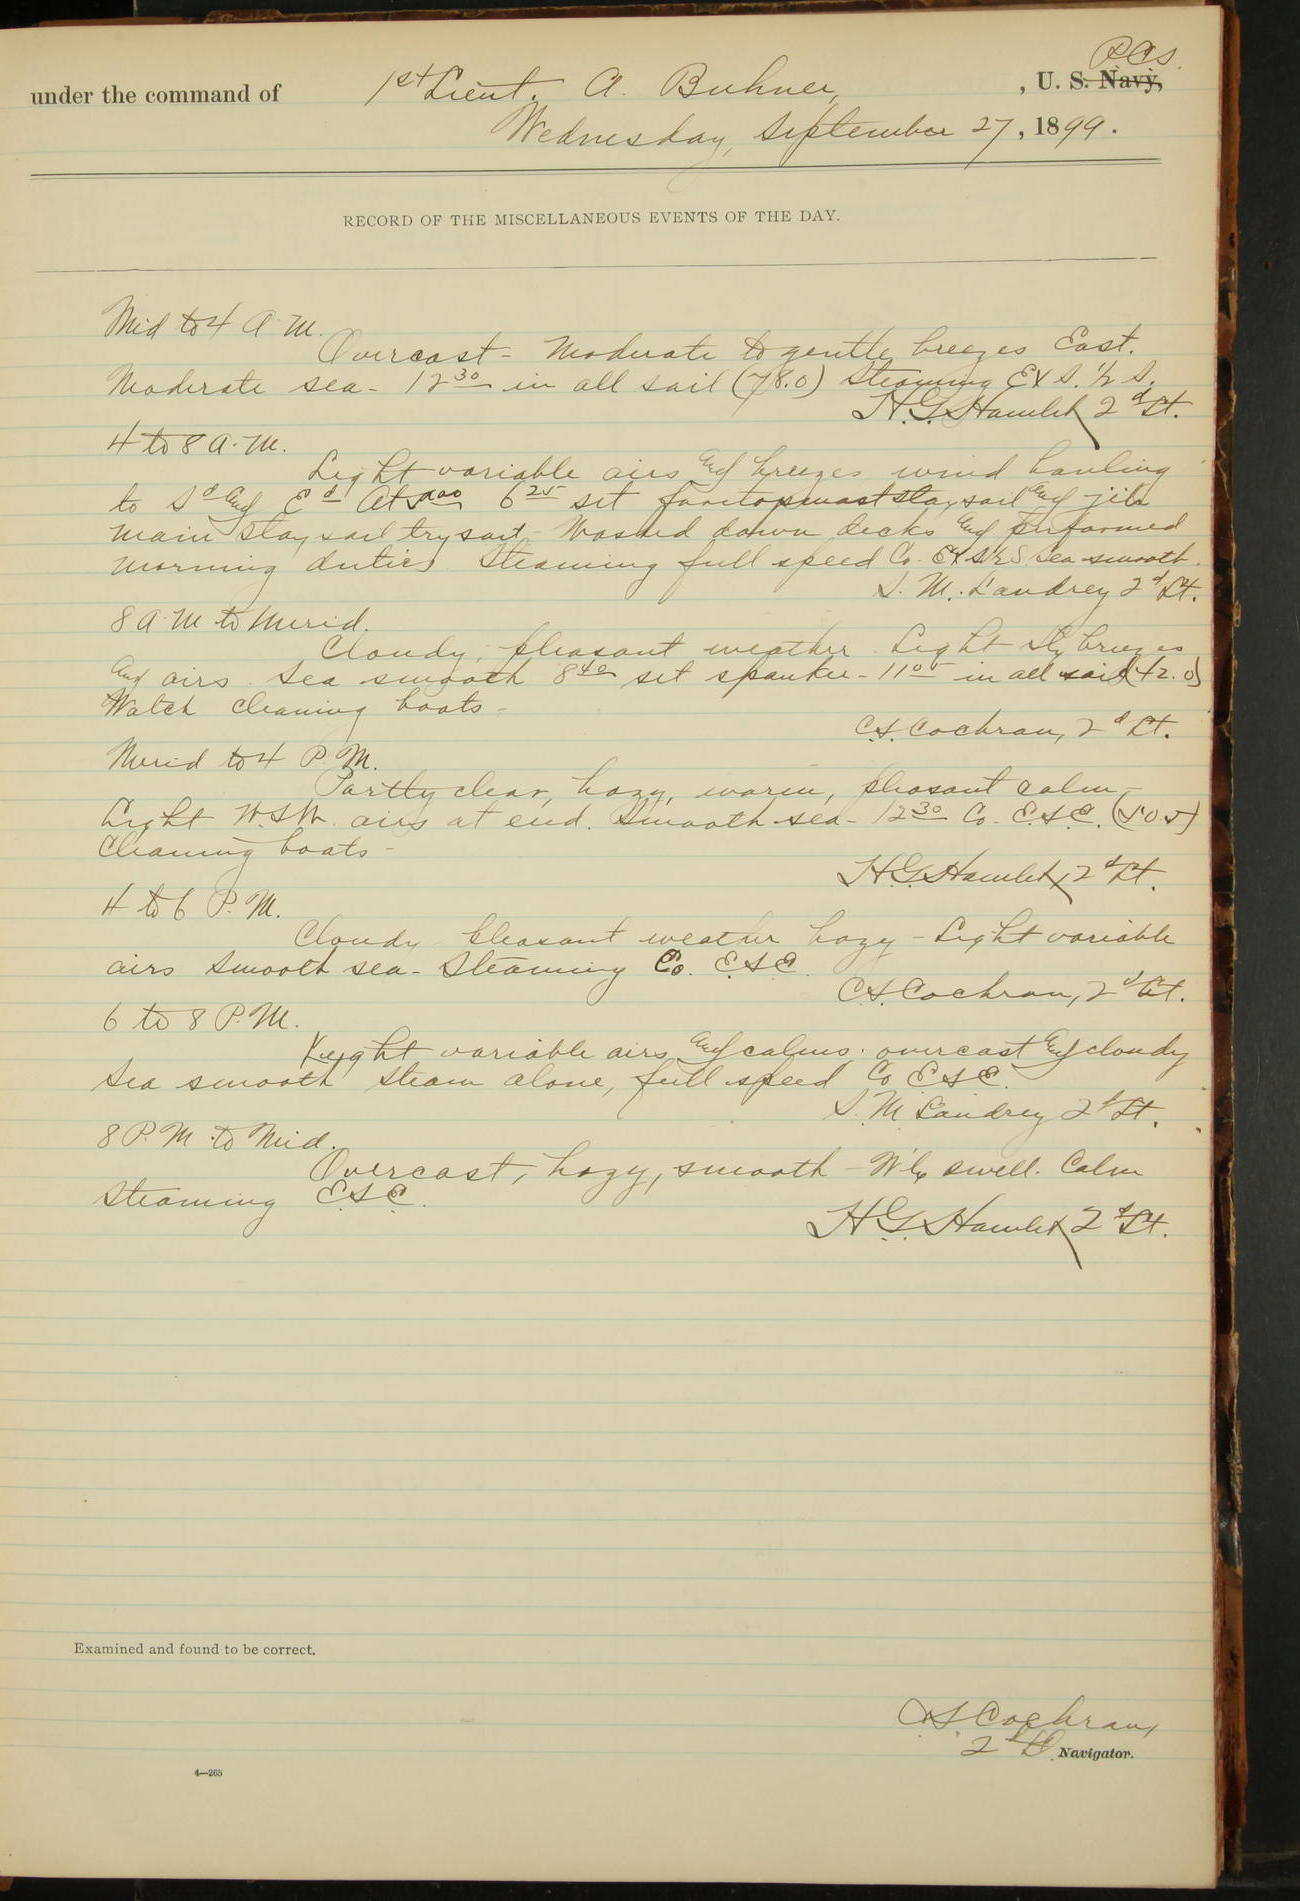 R.C.S.
under the command of 1st Lieut. A. Buhner, , U. S. Navy,
Wednesday, September 27, 1899.
RECORD OF THE MISCELLANEOUS EVENTS OF THE DAY.
Mid to 4 A. M.
Overcast - Moderate to gentle breezes East.
Moderate sea - 12 30 in all sail (78.0) Steaming ExS. 1/2 S.
H.G. Hamlet 2d Lt.
4 to 8 A. M.
Light variable airs and breezes wind hauling
to Sd and Ed At 5 00 6 25 set foretopmast staysail and jib
main staysail trysail - Washed down decks and performed
morning duties Steaming full speed Co. ExS1/2S Sea smooth.
S. M. Landrey 2d Lt.
8 A. M to Merid.
Cloudy, pleasant weather. Light Sly breezes
and airs. Sea smooth 8 40 set spanker - 11 05 in all sail (42.0)
Watch cleaning boats -
C.S. Cochran, 2d Lt.
Merid to 4 P. M.
Partly clear, hazy, warm, pleasant calm -
Light W.S.W. airs at end. Smooth sea - 12 30 Co. E.S.E. (50 5)
Cleaning boats -
H.G. Hamlet, 2d Lt.
4 to 6 P. M.
Cloudy pleasant weather hazy - Light variable
airs Smooth sea - Steaming Co. E.S.E.
C.S. Cochran, 2d Lt.
6 to 8 P. M.
Light variable airs and calms. overcast and cloudy
Sea smooth Steam alone, full speed Co E S E.
S. M. Landrey 2d Lt.
8 P. M to Mid.
Overcast, hazy, smooth - W'ly swell. Calm
Steaming E.S.E.
H G. Hamlet 2d Lt.
Examined and found to be correct.
C.S. Cochran,
2d Lt. Navigator.
4—265